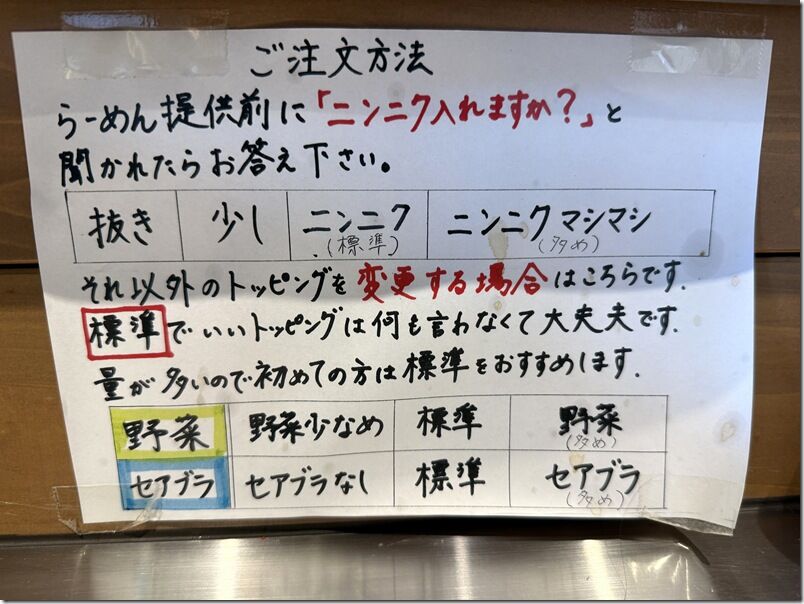 ご注文方法
らーめん提供前に「ニンニク入れますか？」と
聞かれたらお答え下さい。
抜き 少し ニンニク(標準) ニンニクマシマシ(多め)
それ以外のトッピングを変更する場合はこちらです.
標準でいいトッピングは何も言わなくて大夫夫です.
量が多いので初めての方は標準をおすすめします.
野菜 野菜少なめ 標準 野菜(多め)
セアブラ セアブラなし 標準 セアブラ(多め)